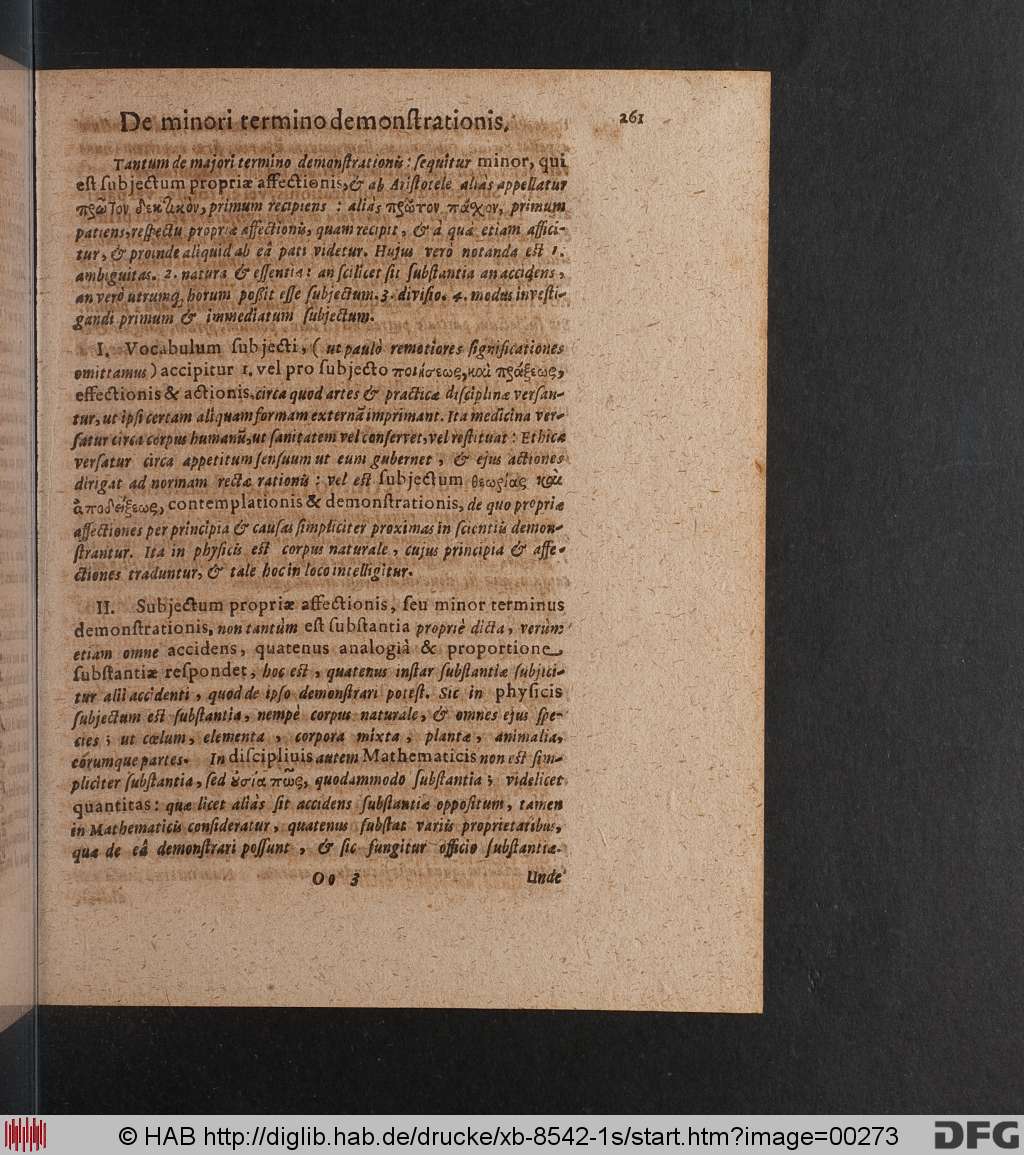 De minori termino demonſtrationis. 261
Tantum de majori termino demonſtrationis: ſequitur minor, qui
eſt ſubjectum propriæ affectionis, & ab Ariſtotele aliàs appellatur
πρῶτον δεκτικὸν, primum recipiens : aliàs πρῶτον πάχον, primum
patiens, reſpectu propriæ affectionis, quam recipit, & à qua etiam affici-
tur, & proinde aliquid ab eâ pati videtur. Hujus verò notanda eſt 1.
ambiguitas. 2. natura & eſſentia: an ſcilicet ſit ſubſtantia an accidens,
an verò utrumq; horum poßit eſſe ſubjectum. 3. diviſio. 4. modus inveſti-
gandi primum & immediatum ſubjectum.
I. Vocabulum ſubjecti, ( ut paulò remotiores ſignificationes
omittamus ) accipitur 1. vel pro ſubjecto ποιήσεως, καὶ πράξεως,
effectionis & actionis, circa quod artes & practicæ diſciplinæ verſan-
tur, ut ipſi certam aliquam formam externã imprimant. Ita medicina ver-
ſatur circa corpus humanũ, ut ſanitatem vel conſervet, vel reſtituat : Ethica
verſatur circa appetitum ſenſuum ut eum gubernet , & ejus actiones
dirigat ad normam rectæ rationis : vel eſt ſubjectum θεωρίας καὶ
ἀποδείξεως, contemplationis & demonſtrationis, de quo propriæ
affectiones per principia & cauſas ſimpliciter proximas in ſcientiis demon-
ſtrantur. Ita in phyſicis eſt corpus naturale , cujus principia & affe-
ctiones traduntur, & tale hoc in loco intelligitur.
II. Subjectum propriæ affectionis, ſeu minor terminus
demonſtrationis, non tantùm eſt ſubſtantia propriè dicta, verùm
etiam omne accidens, quatenus analogiâ & proportione
ſubſtantiæ reſpondet, hoc eſt , quatenus inſtar ſubſtantiæ ſubjici-
tur alii accidenti , quod de ipſo demonſtrari poteſt. Sic in phyſicis
ſubjectum eſt ſubſtantia, nempè corpus naturale, & omnes ejus ſpe-
cies ; ut cœlum, elementa , corpora mixta , plantæ , animalia,
eórumque partes. In diſciplinis autem Mathematicis non eſt ſim-
pliciter ſubſtantia, ſed ȣ̓σία πῶς, quodammodo ſubſtantia ; videlicet
quantitas: quæ licet aliàs ſit accidens ſubſtantiæ oppoſitum, tamen
in Mathematicis conſideratur, quatenus ſubſtat variis proprietatibus,
quæ de eâ demonſtrari poſſunt , & ſic fungitur officio ſubſtantiæ.
Oo 3 Unde
© HAB http://diglib.hab.de/drucke/xb-8542-1s/start.htm?image=00273 DFG